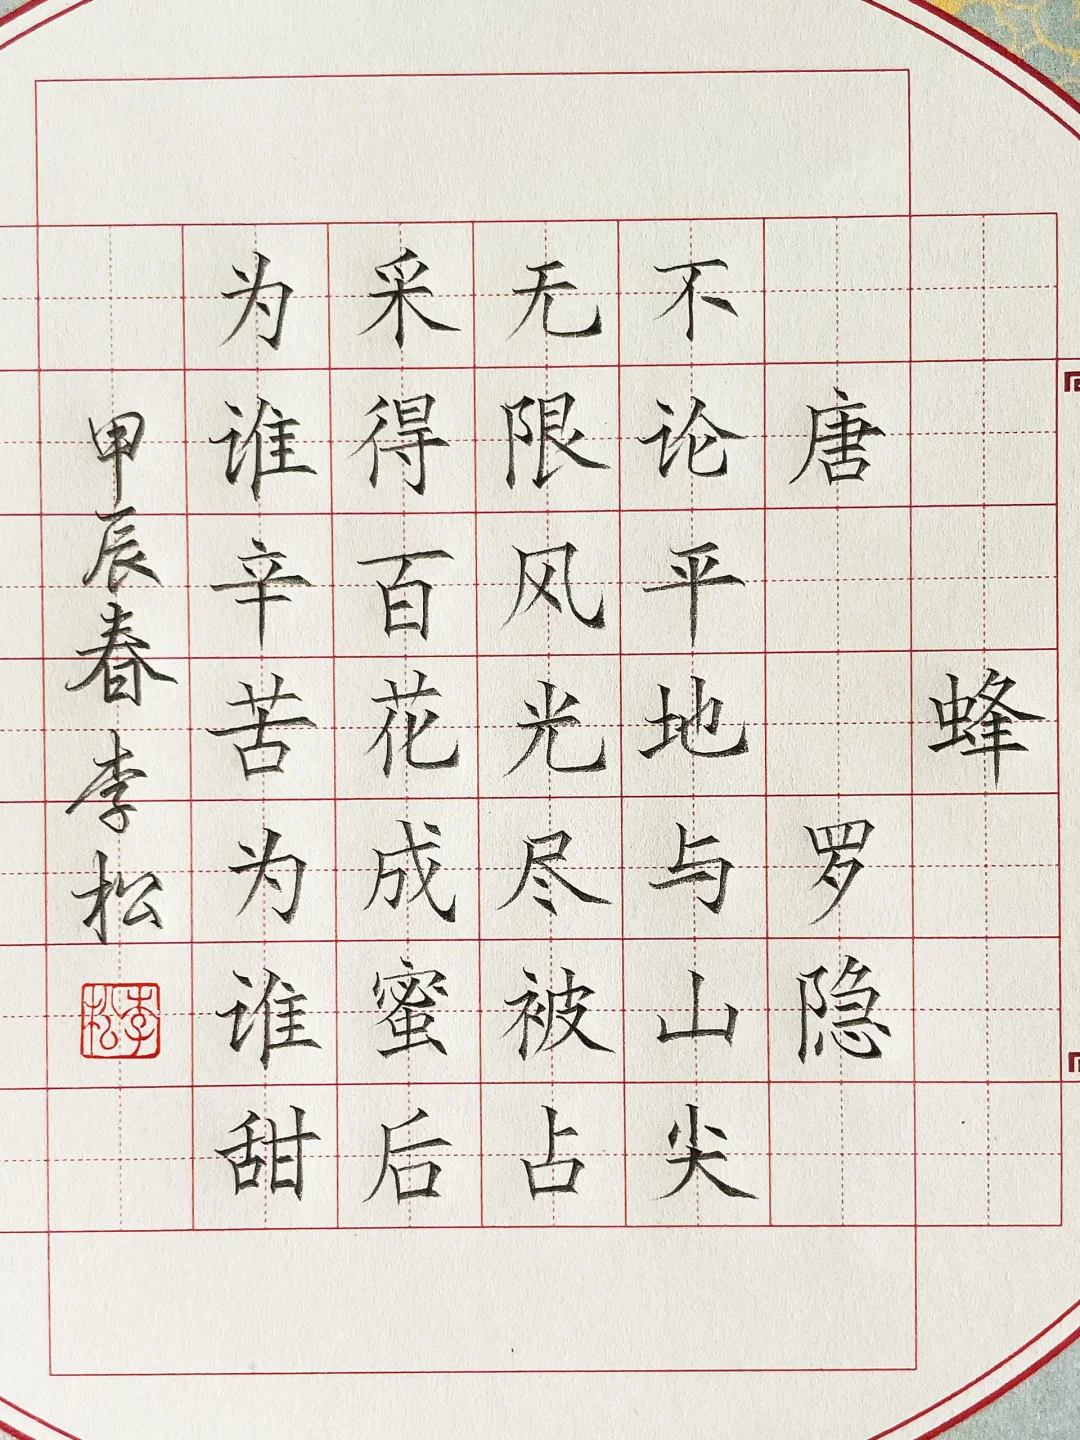 蜂
唐 罗隐
不论平地与山尖
无限风光尽被占
采得百花成蜜后
为谁辛苦为谁甜
甲辰春李松
李松